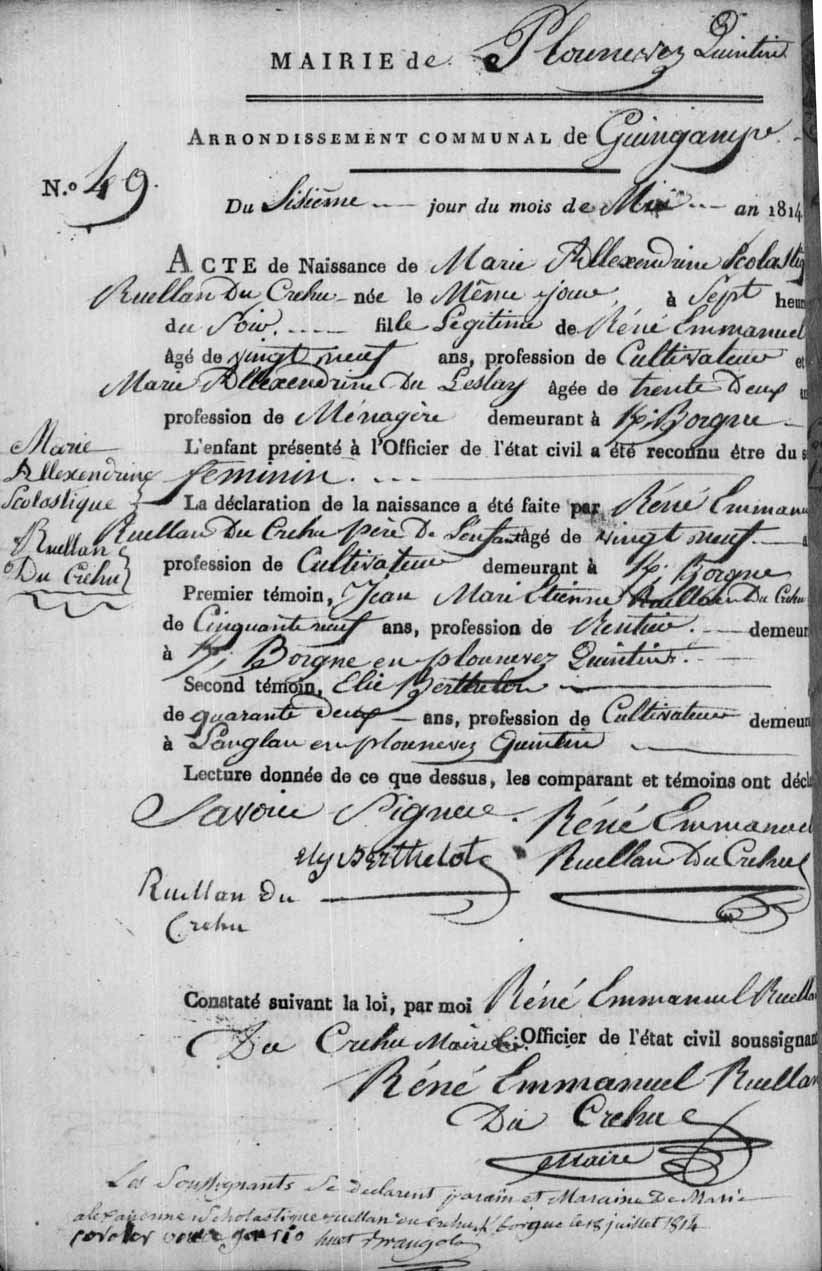 MAIRIE de Plounevez Quintin
ARRONDISSEMENT COMMUNAL de Guingamp
N.o 49.
Du Sisième jour du mois de Mai an 1814
ACTE de Naissance de Marie Allexendrine Scolastiq
Ruellan Du Crehu née le Même jour, à Sept heur
du Soir. fille Legitime de Réné Emmanuel
âgé de vingt neuf ans, profession de Cultivateur et
Marie Allexendrine Du Leslay âgée de trente Deux
profession de Ménagère demeurant à K/: Borgne
L'enfant présenté à l'Officier de l'état civil a été reconnu être du s
feminin.
Marie
Allexendrine
Scolastique
Ruellan
Du Crehu
La déclaration de la naissance a été faite par Réné Emmanu
Ruellan Du Crehu père De L'enfant âgé de vingt neuf
profession de Cultivateur demeurant à K/: Borgne
Premier témoin, Jean Mari Etienne Ruellan Du Crehu
de Cinquante neuf ans, profession de Rentier. demeur
à K/: Borgne en plounevez Quintin.
Second témoin, Elie Berthelot
de quarante Deux ans, profession de Cultivateur demeur
à Langlau en plounevez Quintin
Lecture donnée de ce que dessus, les comparant et témoins ont décl
Savoir Signer. Réné Emmanuel
ely Berthelot Ruellan Du Crehu
Ruellan du
Crehu
Constaté suivant la loi, par moi Réné Emmanuel Ruella
Du Crehu Maire Officier de l'état civil soussignan
Réné Emmanuel Ruellan
Du Crehu
Maire
Les Soussignants Se Declarent parain et Maraine De Marie
Scholastique ruellan du crehu K/ borgne le 18 juillet 1814
huet